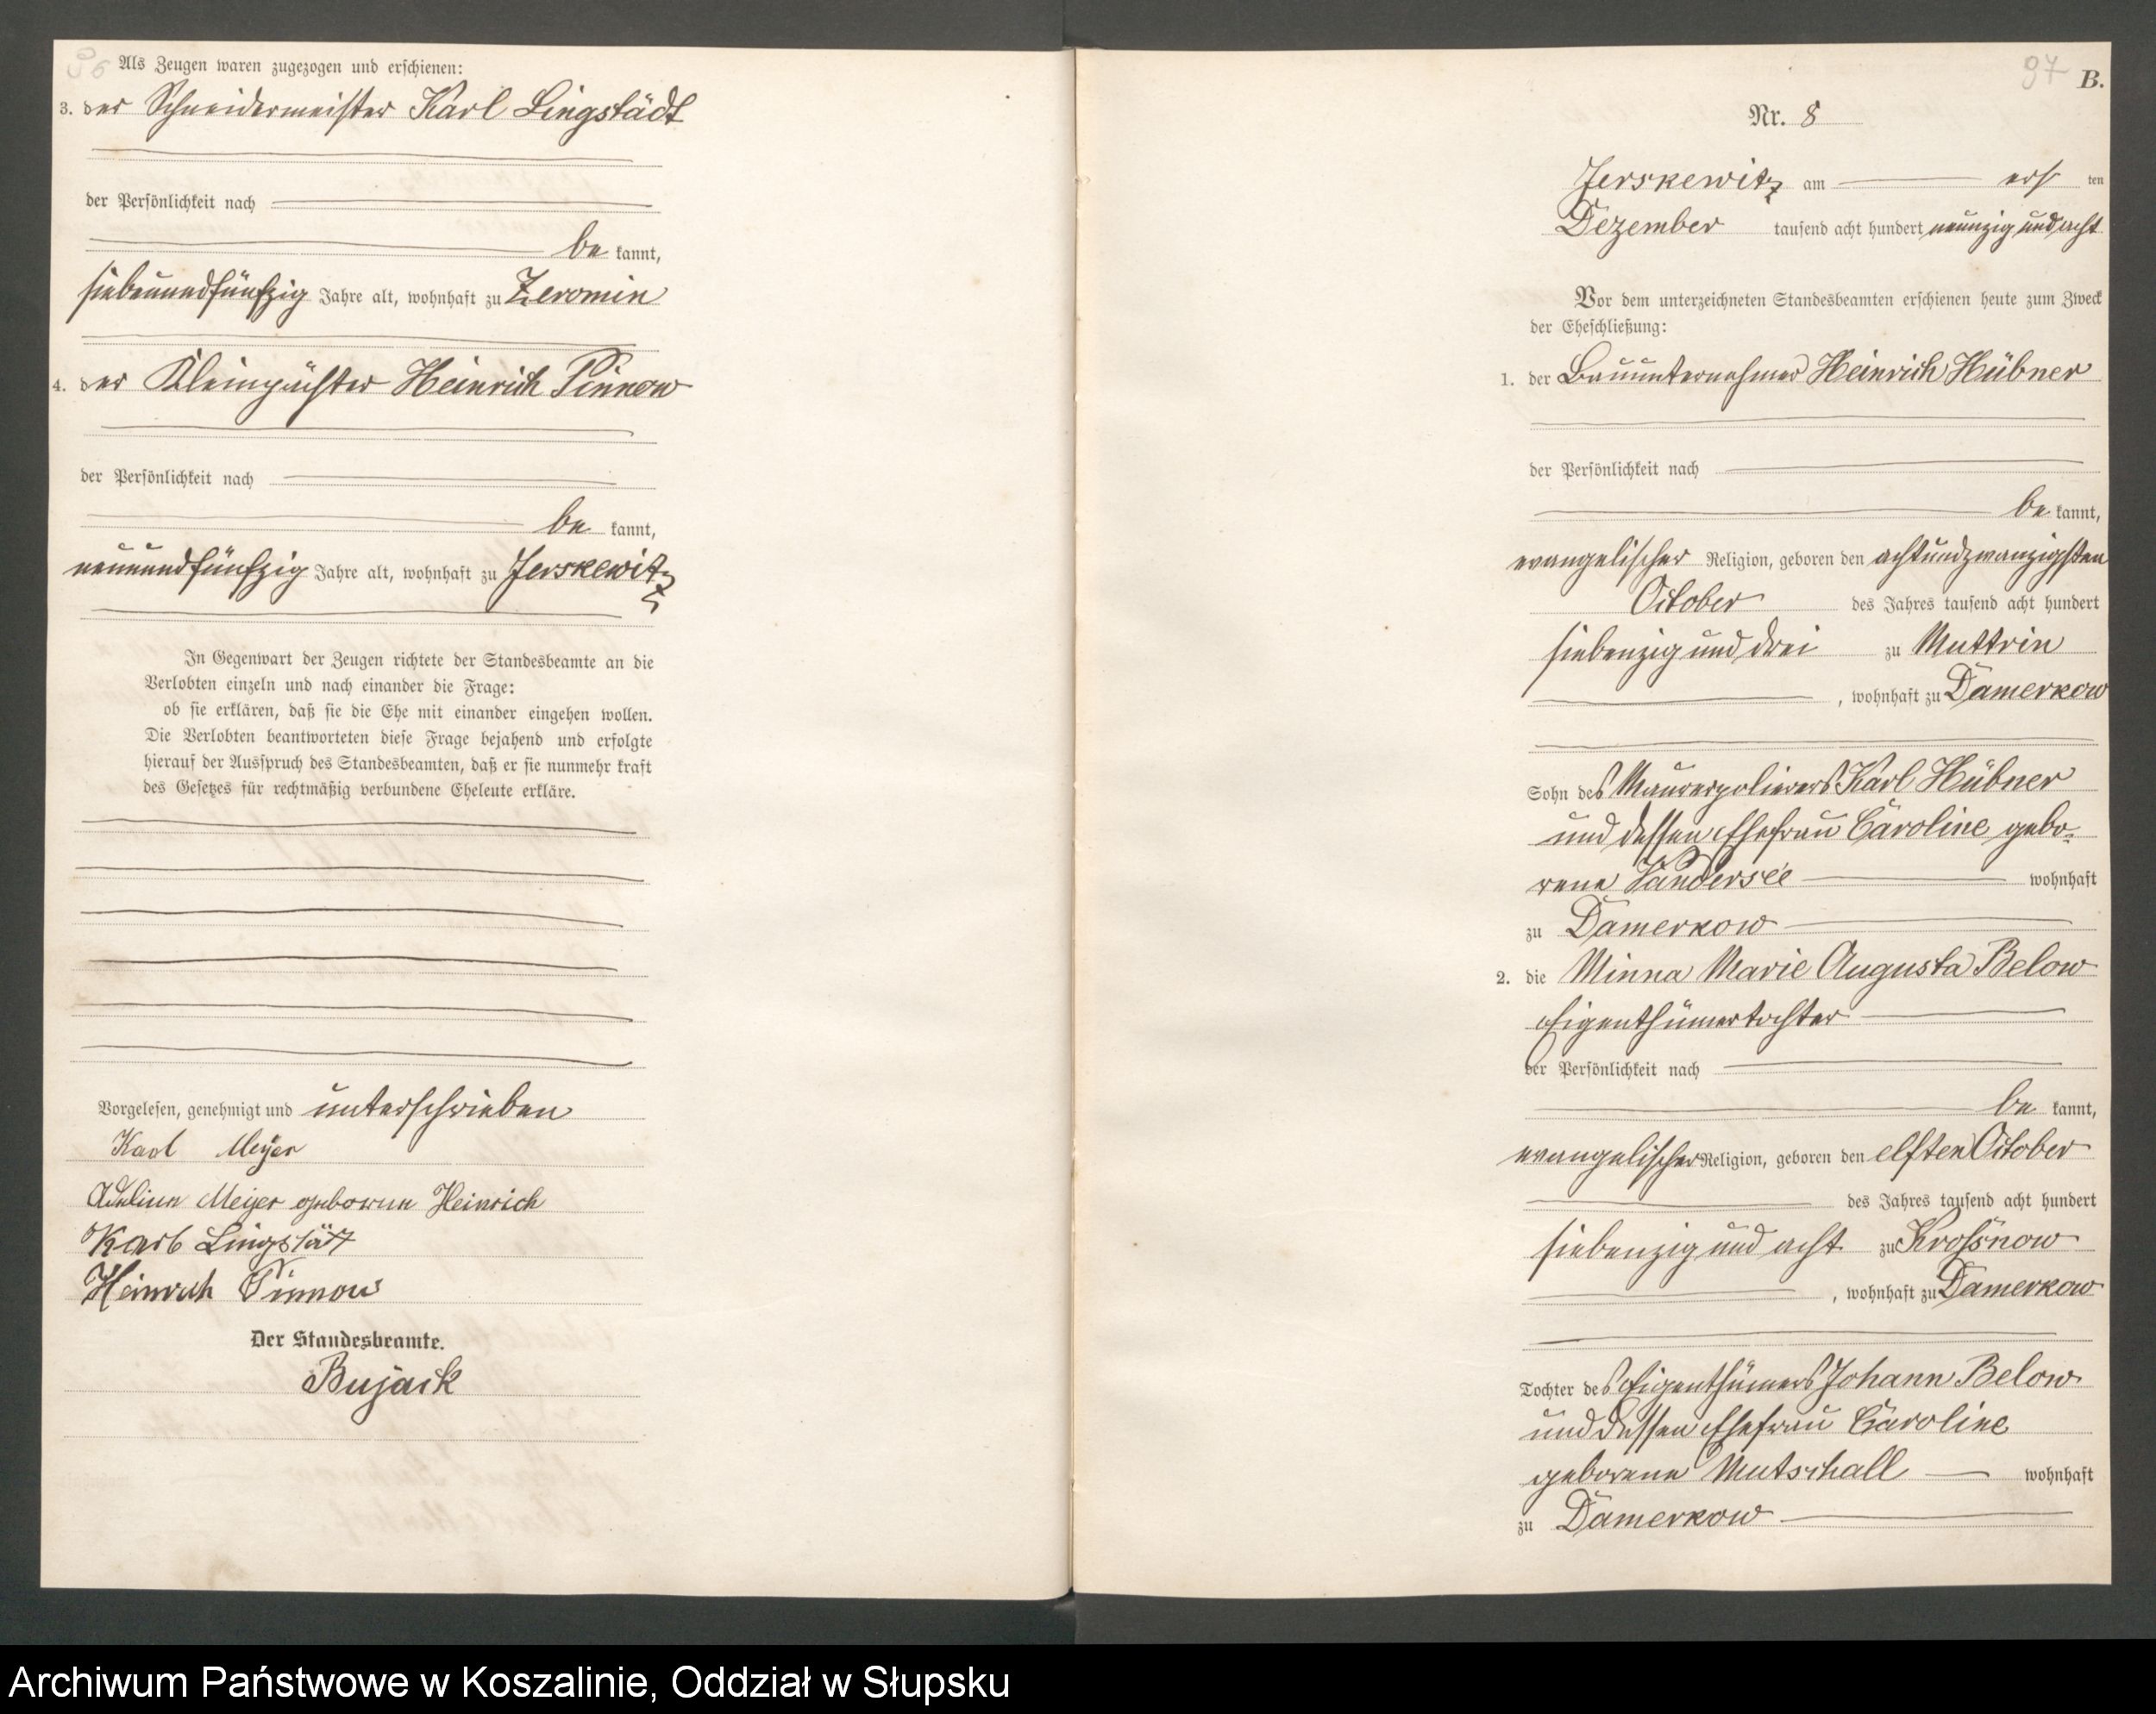 96
Als Zeugen waren zugezogen und erschienen:
3. der Schneidermeister Karl Lingstädt
der Persönlichkeit nach
be kannt,
siebenundfünfzig Jahre alt, wohnhaft zu Zeromin
4. der Kleinpächter Heinrich Pinnow
der Persönlichkeit nach
be kannt,
neunundfünfzig Jahre alt, wohnhaft zu Jerskewitz
In Gegenwart der Zeugen richtete der Standesbeamte an die
Verlobten einzeln und nach einander die Frage:
ob sie erklären, daß sie die Ehe mit einander eingehen wollen.
Die Verlobten beantworteten diese Frage bejahend und erfolgte
hierauf der Ausspruch des Standesbeamten, daß er sie nunmehr kraft
des Gesetzes für rechtmäßig verbundene Eheleute erkläre.
Vorgelesen, genehmigt und unterschrieben
Karl Meyer
Meyer geborene Heinrich
Karl Lingstät
Heinrich Pinnow
Der Standesbeamte.
Bujack
97 B.
Nr. 8
Jerskewitz am ers ten
Dezember tausend acht hundert neunzig und acht
Vor dem unterzeichneten Standesbeamten erschienen heute zum Zweck
der Eheschließung:
1. der Bauunternehmer Heinrich Hübner
der Persönlichkeit nach
be kannt,
evangelischer Religion, geboren den achtundzwanzigsten
October des Jahres tausend acht hundert
siebenzig und drei zu Muttrin
, wohnhaft zu Damerkow
Sohn des Maurerpolierers Karl Hübner
und dessen Ehefrau Caroline gebo-
rene Vandersee wohnhaft
zu Damerkow
2. die Minna Marie Augusta Below
Eigenthümertochter
der Persönlichkeit nach
be kannt,
evangelischer Religion, geboren den elften October
des Jahres tausend acht hundert
siebenzig und acht zu Krossnow
, wohnhaft zu Damerkow
Tochter des Eigenthümers Johann Below
und dessen Ehefrau Caroline
geborene Mutschall wohnhaft
zu Damerkow
Archiwum Państwowe w Koszalinie, Oddział w Słupsku